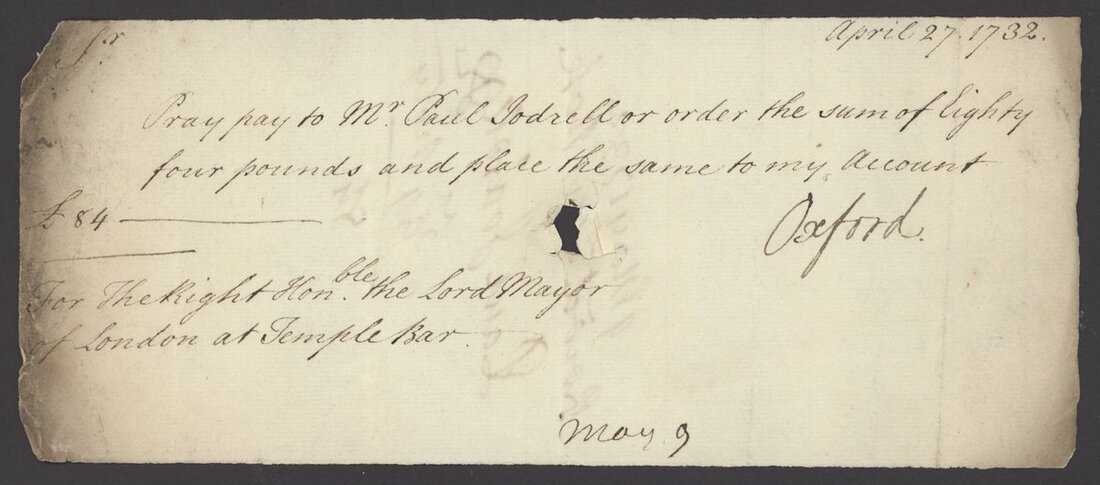 Sr April 27. 1732.
Pray pay to Mr Paul Jodrell or order the sum of Eighty
four pounds and place the same to my Account
£ 84
Oxford.
For The Right Honble. the Lord Mayor
of London at Temple Bar.
May 9